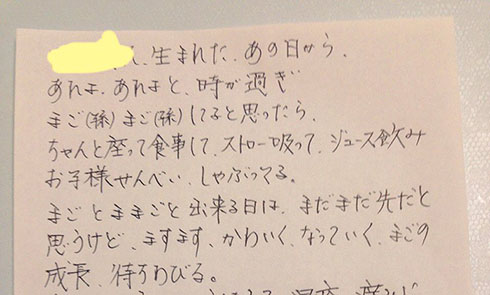 、生まれた、あの日から、
あれよ、あれよと、時が過ぎ
まご(孫)まご(孫)してると思ったら、
ちゃんと座って食事して、ストロー吸って、ジュース飲み
お子様せんべい、しゃぶってる。
まごとままごと出来る日は、まだまだ先だと
思うけど、ますます、かわいく、なっていく、まごの
成長、待ちわびる。